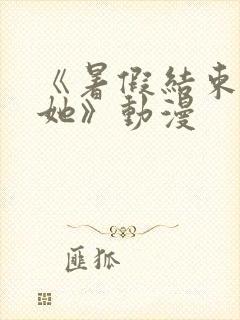 《暑假結束
她》動漫
匪狐